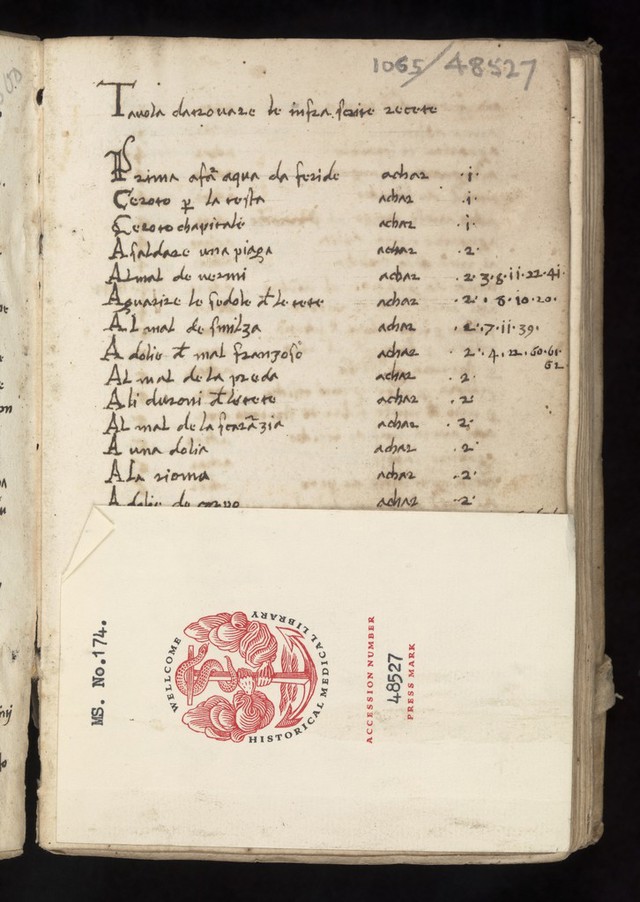 1065/48527
Tavola da trovare le infra scrite recete
Prima a far aqua da feride achar .i.
Ceroto p la testa achar .i.
Ceroto chapitale achar .i.
A saldare una piaga achar .2.
Al mal de vermi achar .2.3.8.ii.22.41
Aguarire le sedole de le tete achar .2.8.10.20.
Al mal de smilza achar .2.7.ii.39.
A dolie de mal franzoso achar .2.4.22.60.61.
62
Al mal de la preda achar .2.
A li duroni de le tete achar .2.
Al mal de la achar .2.
A una dolia achar .2.
A la achar .2.
A dolie de corpo achar .2.
MS. No.174.
WELLCOME HISTORICAL MEDICAL LIBRARY
ACCESSION NUMBER
48527
PRESS MARK